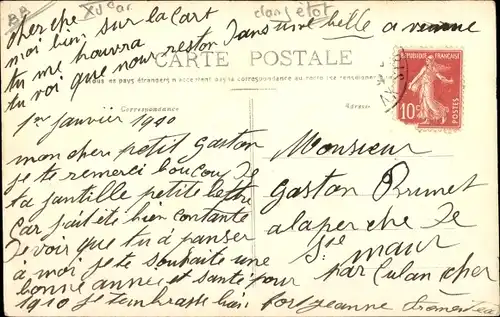 cherche
moi bien sur la cart
tu me trouvra
tu voi que nous reston dans une belle a venue
CARTE POSTALE
Tous les pays étrangers n'acceptent pas la correspondance au recto
Correspondance
Adresse
RÉPUBLIQUE FRANÇAISE
10c
POSTES
1er Janvier 1910
mon cher petit Gaston
je te remerci boucou de
ta jantille petite lettre
car j'ait été bien contante
de voir que tu à panser
a moi je te souhaite une
bonne année et santé pour
1910 je t'embrasse bien fort jeanne
Monsieur
Gaston Brunet
a la perche de
St maur
par Culan cher